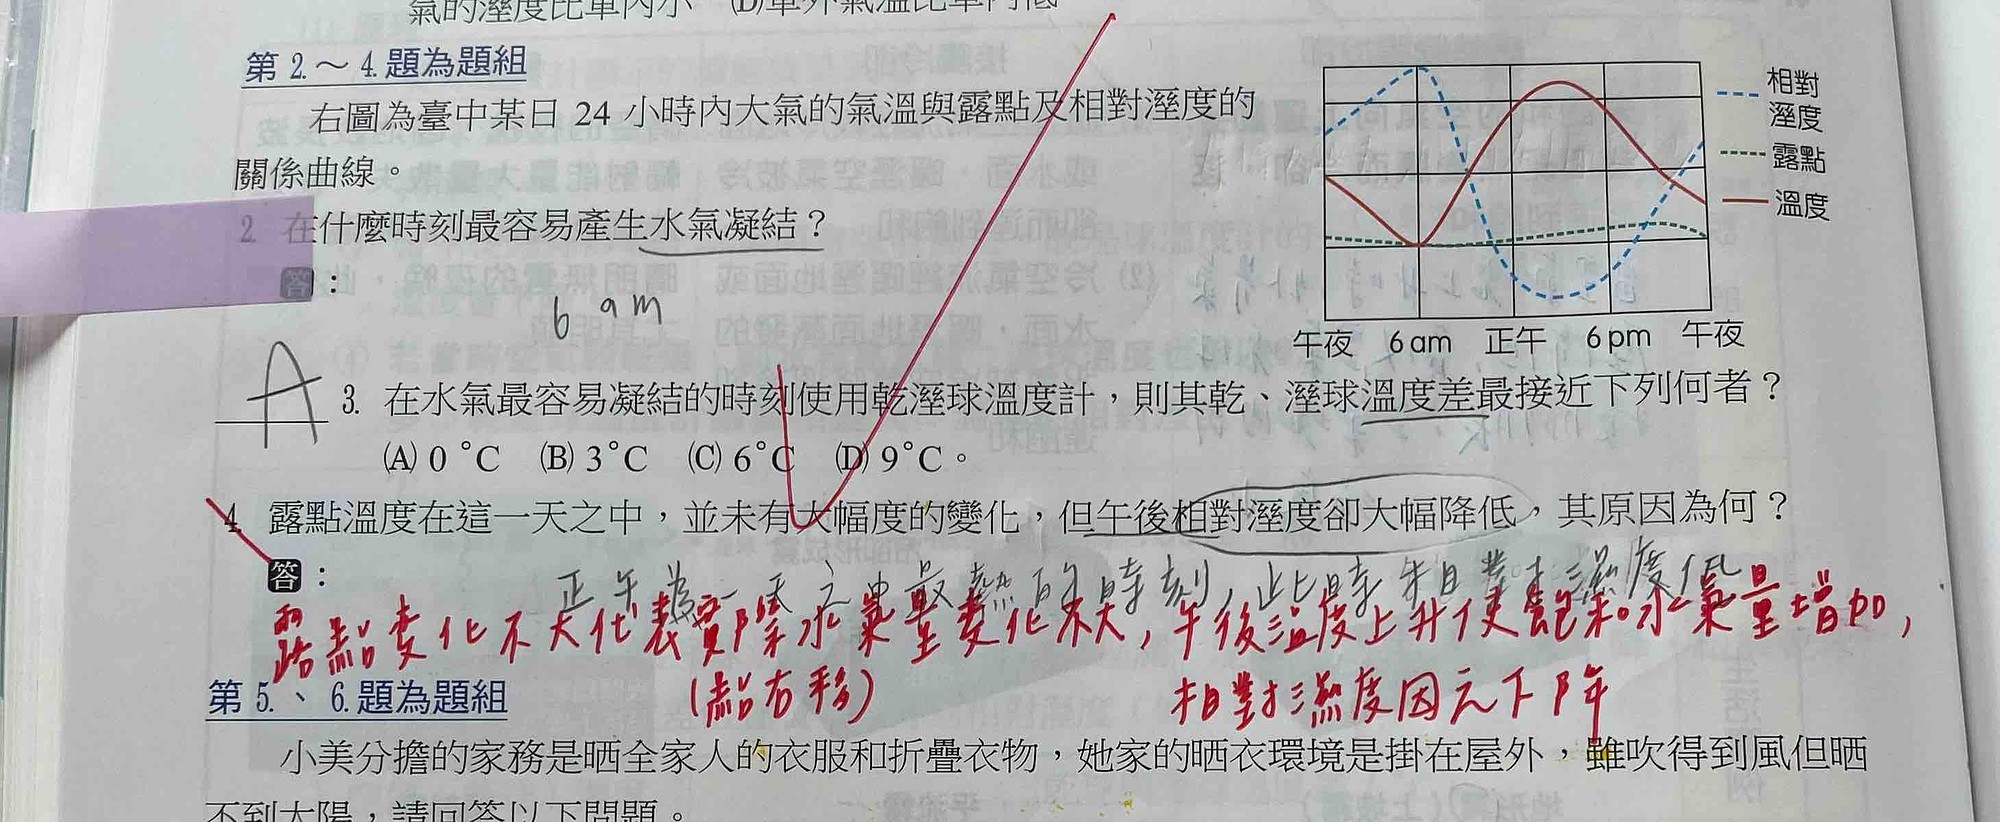 氣的溼度比車內小 (D)車外氣溫比車內低
第 2.～ 4.題為題組
右圖為臺中某日 24 小時內大氣的氣溫與露點及相對溼度的
關係曲線。
2 在什麼時刻最容易產生水氣凝結？
答：
6 am
相對
溼度
露點
溫度
午夜 6 am 正午 6 pm 午夜
A 3. 在水氣最容易凝結的時刻使用乾溼球溫度計，則其乾、溼球溫度差最接近下列何者？
(A) 0 °C (B) 3°C (C) 6°C (D) 9°C。
4 露點溫度在這一天之中，並未有大幅度的變化，但午後相對溼度卻大幅降低，其原因為何？
答：
正午為一天之中最熱的時刻，此時相對濕度低
露點變化不大代表實際水氣量變化不大，午後溫度上升使飽和水氣量增加，
(點右移) 相對濕度因而下降
第 5.、 6.題為題組
小美分擔的家務是晒全家人的衣服和折疊衣物，她家的晒衣環境是掛在屋外，雖吹得到風但晒
不到太陽，請回答以下問題。